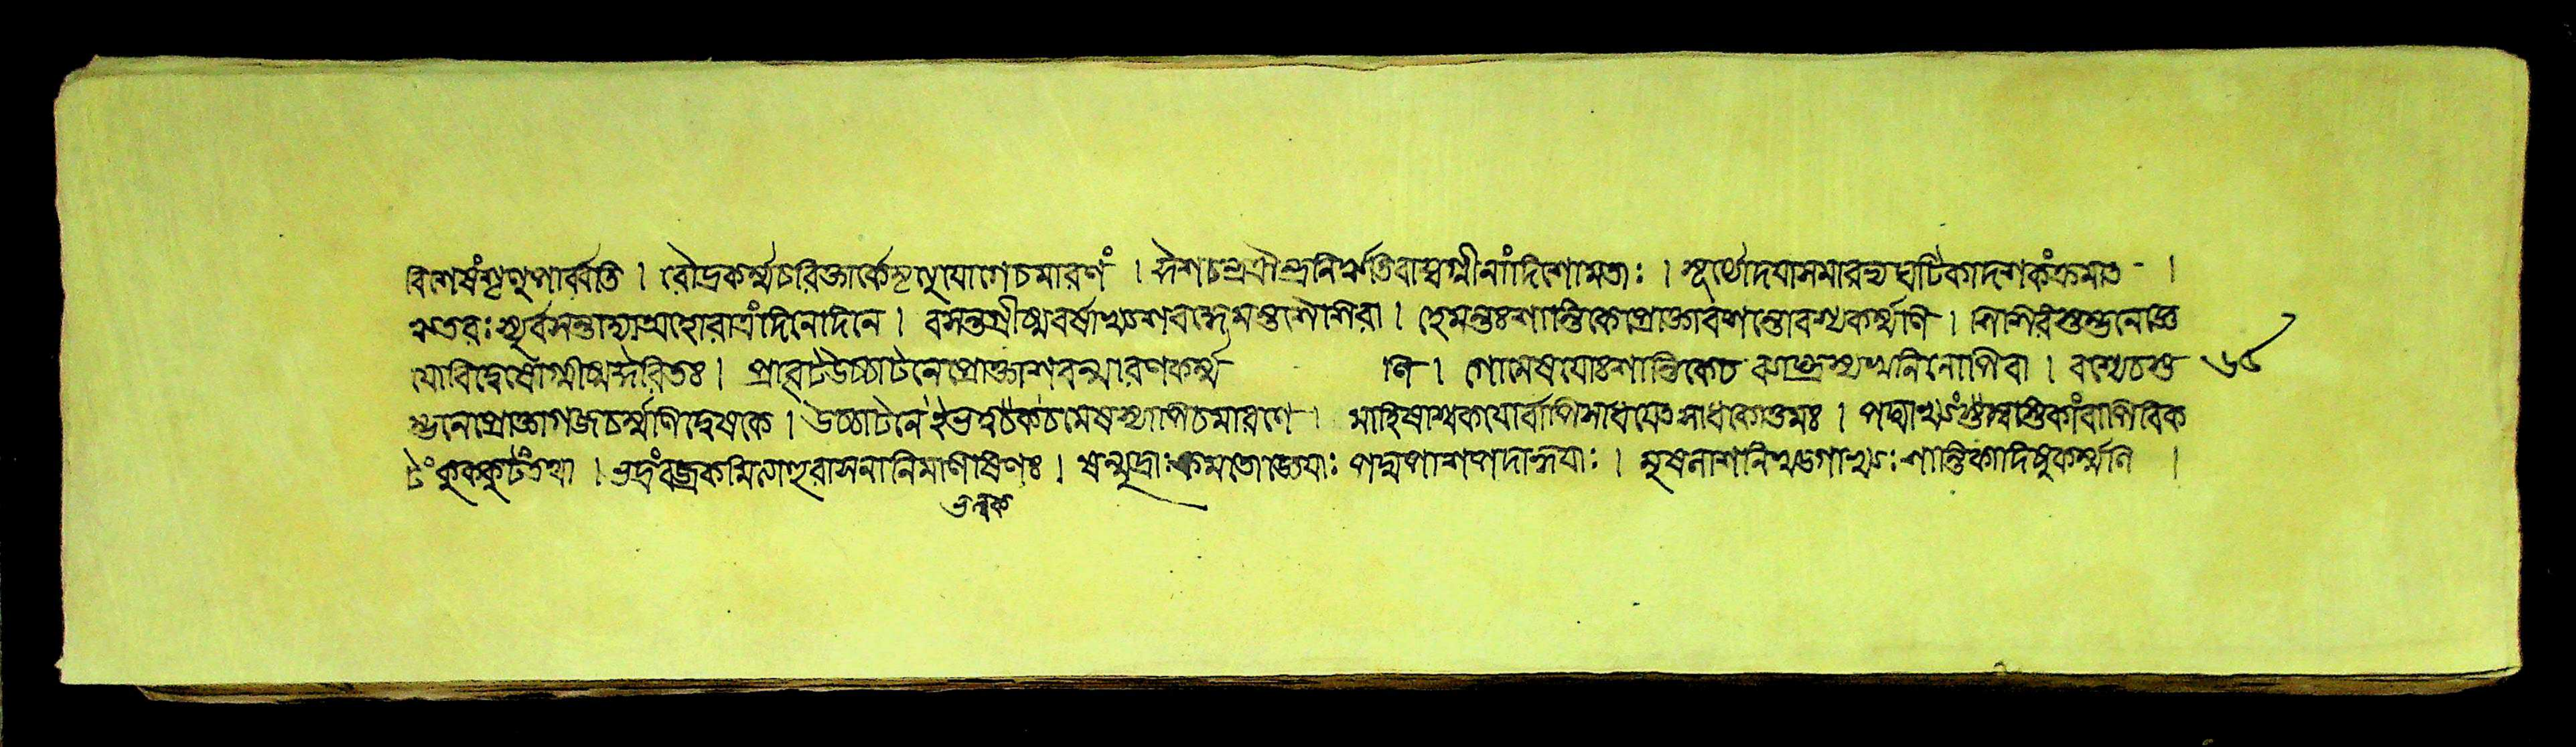 বিশেষংশৃণুপার্ব্বতি । রৌদ্রকর্ম্মচরিক্তার্কেমৃত্যুযোগেচমারণং । ঈশচন্দ্রেন্দ্রনিঋতিবায়্বগ্নীনাংদিশোমতাঃ । সূর্য্যোদয়াসমারভ্যঘটিকাদশকংক্রমাত ।
ঋতবঃস্যুর্বসন্তাদ্যাঅহোরাত্রংদিনেদিনে । বসন্তগ্রীষ্মবর্ষাখ্যশরদ্ধেমন্তশৈশিরা । হেমন্তঃশান্তিকেপ্রোক্তাবসন্তোবশ্যকর্ম্মণি । শিশিরস্তম্ভনেজ্ঞে
যোবিদ্বেষেগ্রীষ্মঈরিতঃ । প্রাবৃটউচ্চাটনেপ্রোক্তাশরন্মারণকর্ম্মণি । গোমেষয়োঃশান্তিকেচব্যাঘ্রস্যথনিনোপিবা । বশ্যেচস্ত ৬৫
ম্ভনেপ্রোক্তাগজচর্ম্মণিদ্বেষকে । উচ্চাটনে চমেষস্যাপিচমারণে । মাহিষাশ্বকয়োর্বাপিসাধয়েৎসাধকোত্তমঃ । পদ্মাখ্যংস্বস্তিকাংবাপিবিক
টংকুক্কুটংতথা । ভদ্রংবজ্রকমিত্যাহুরাসনানিমণীষিণঃ । ষন্মুদ্রাঃক্রমতোজ্ঞেয়াঃপদ্মপাশগদাহ্বয়াঃ । মুষলাশনিখড্গাখ্যাঃশান্তিকাদিষুকর্ম্মনি ।